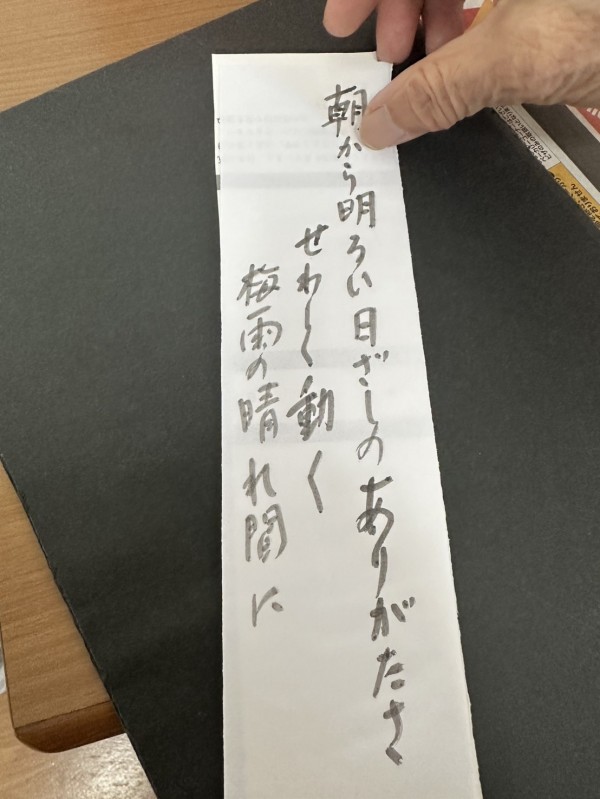 朝から明るい日ざしのありがたさ
せわしく動く
梅雨の晴れ間に